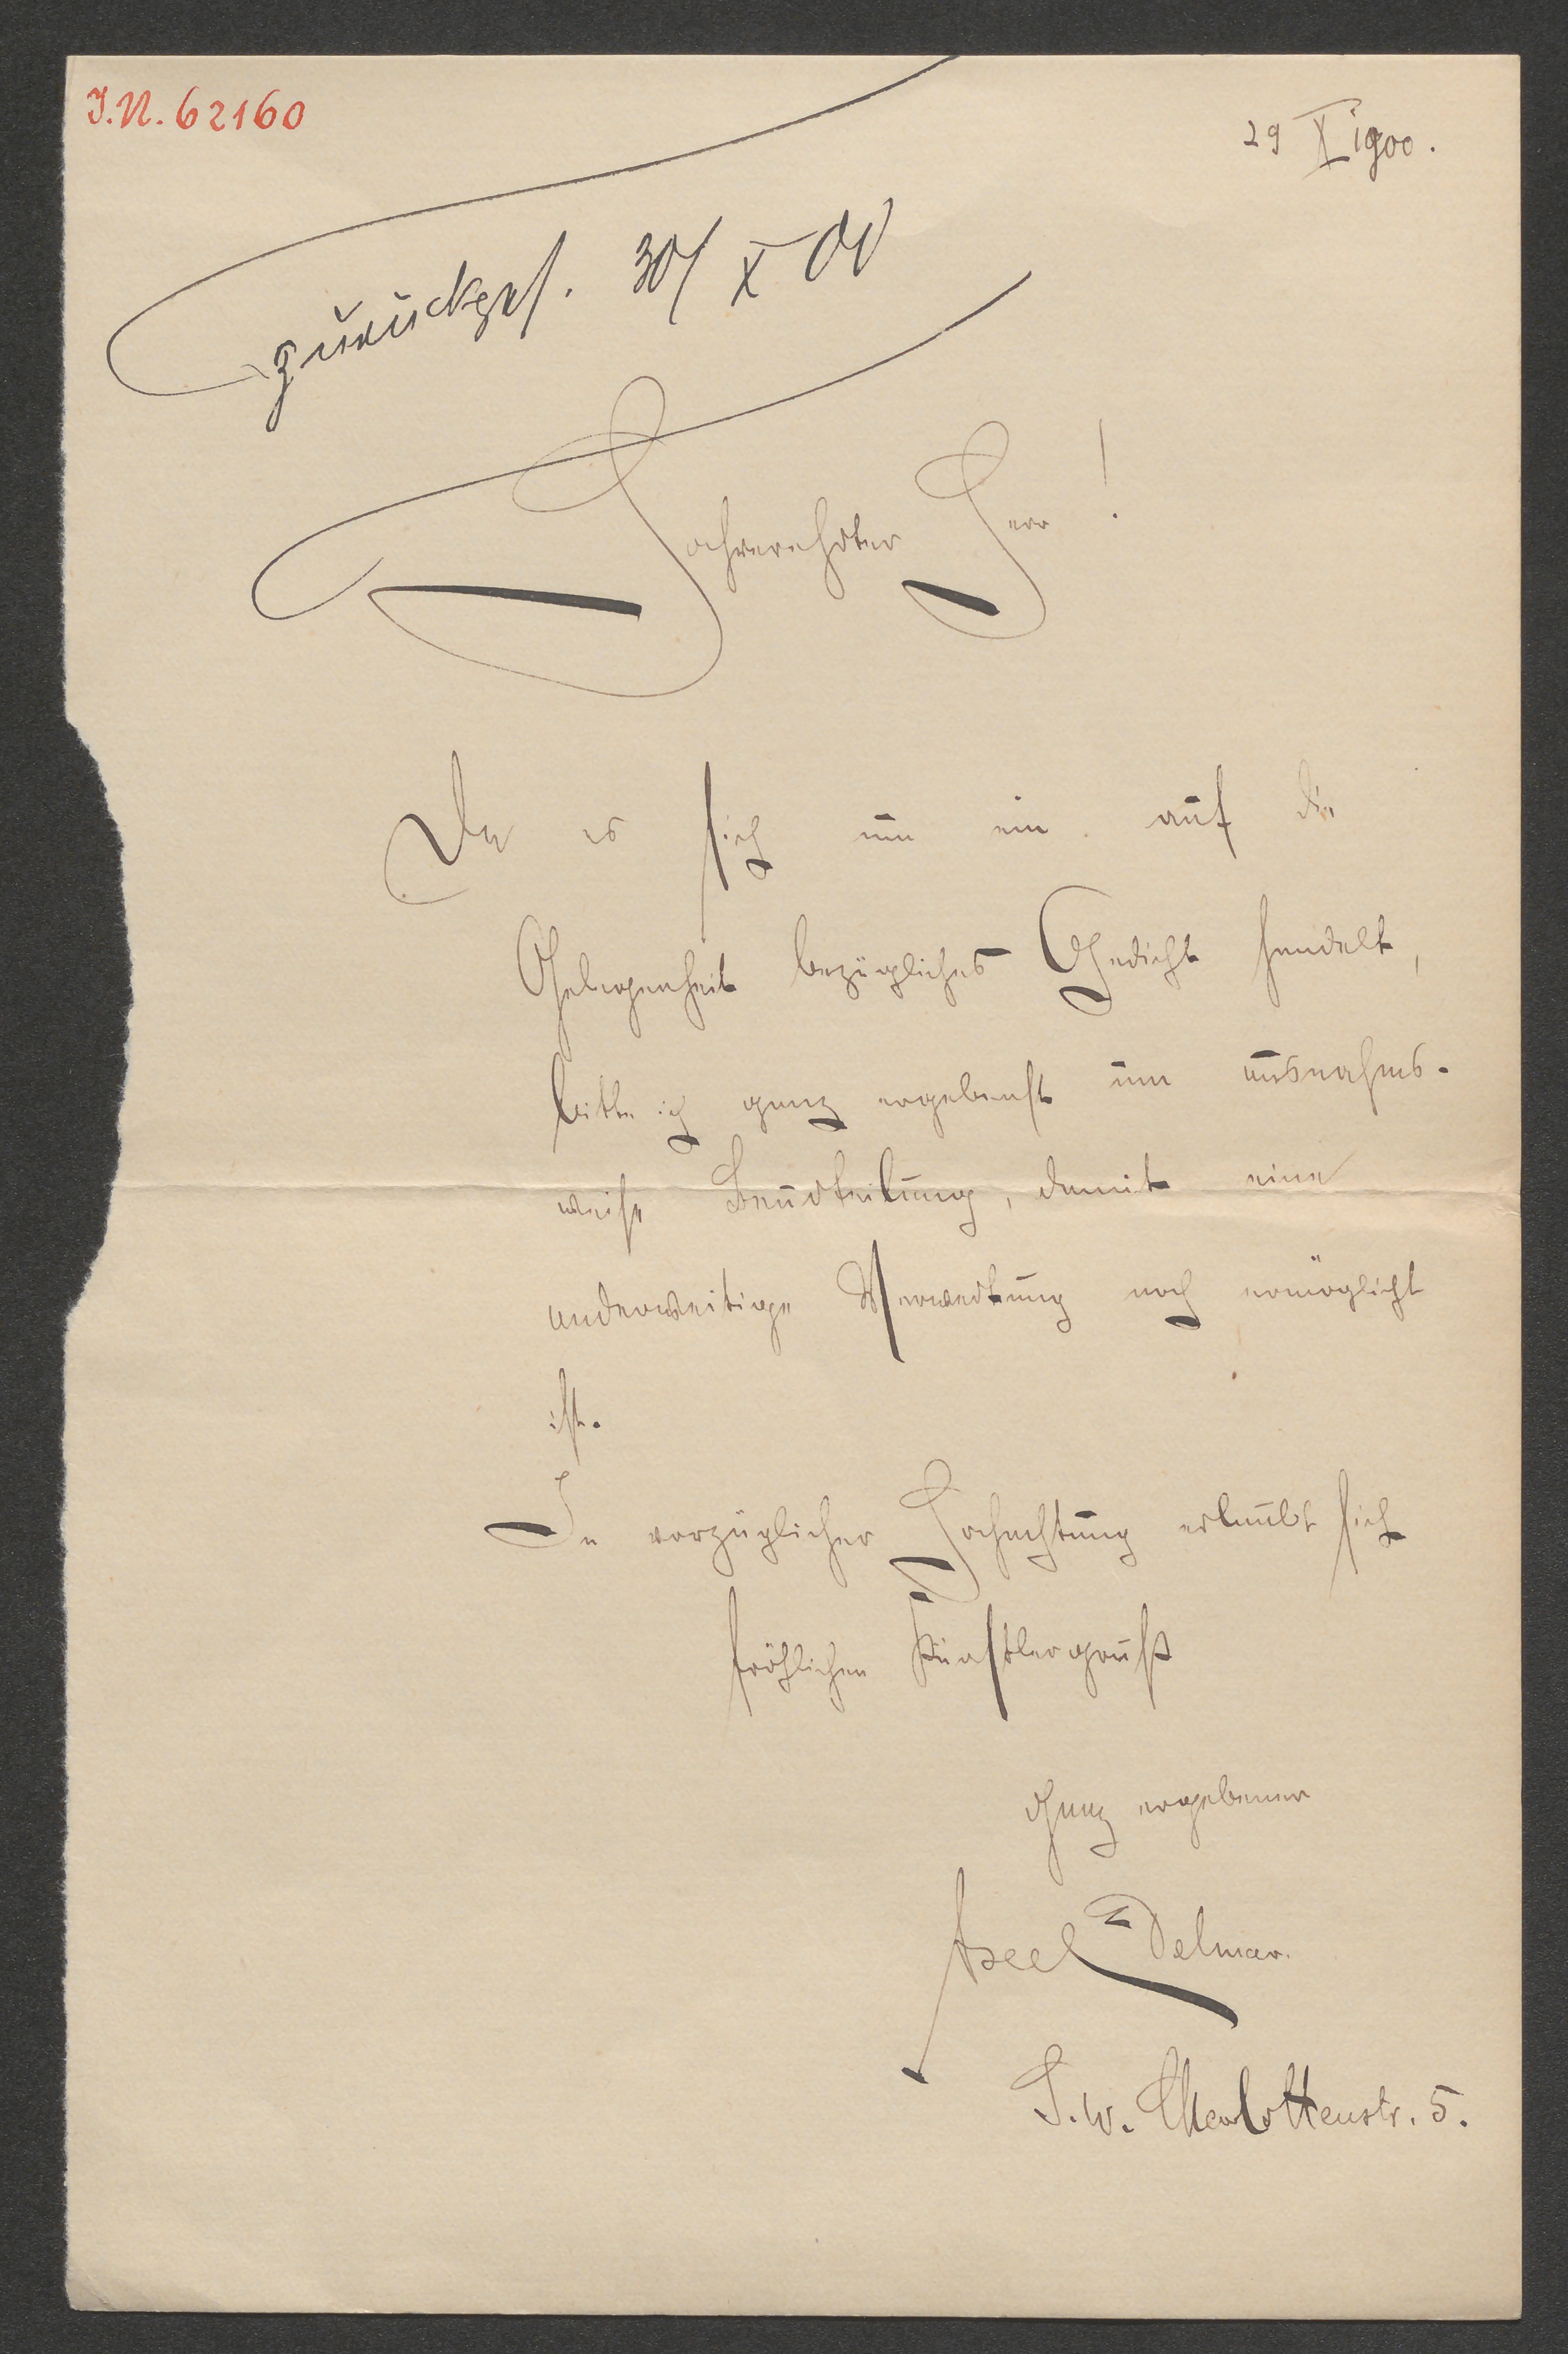 J.N. 62160
29 X 1900.
zurückges. 30/X 00
Hochverehrter Herr!
Da es sich um ein auf die
Gelegenheit bezügliches Gedicht handelt,
bitte ich ganz ergebenst um ausnahms-
weise Beurteilung, damit eine
anderweitige Verwertung noch ermöglicht
ist.
In vorzüglicher Hochachtung erlaubt sich
fröhlichen Künstlergruß
Ganz ergebener
Axel Delmar.
S.W. Charlottenstr. 5.